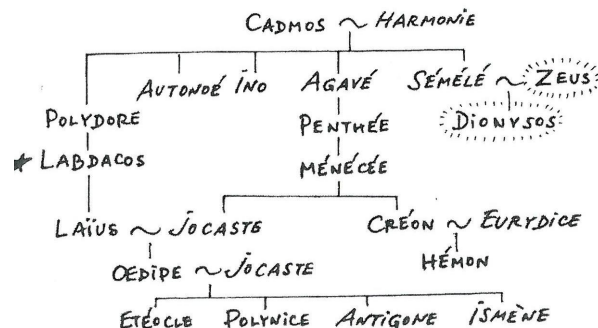 CADMOS ~ HARMONIE
AUTONOÉ INO AGAVÉ SÉMÉLÉ ~ ZEUS
POLYDORE PENTHÉE DIONYSOS
★ LABDACOS MÉNÉCÉE
LAÏUS ~ JOCASTE CRÉON ~ EURYDICE
ŒDIPE ~ JOCASTE HÉMON
ETÉOCLE POLYNICE ANTIGONE ISMÈNE